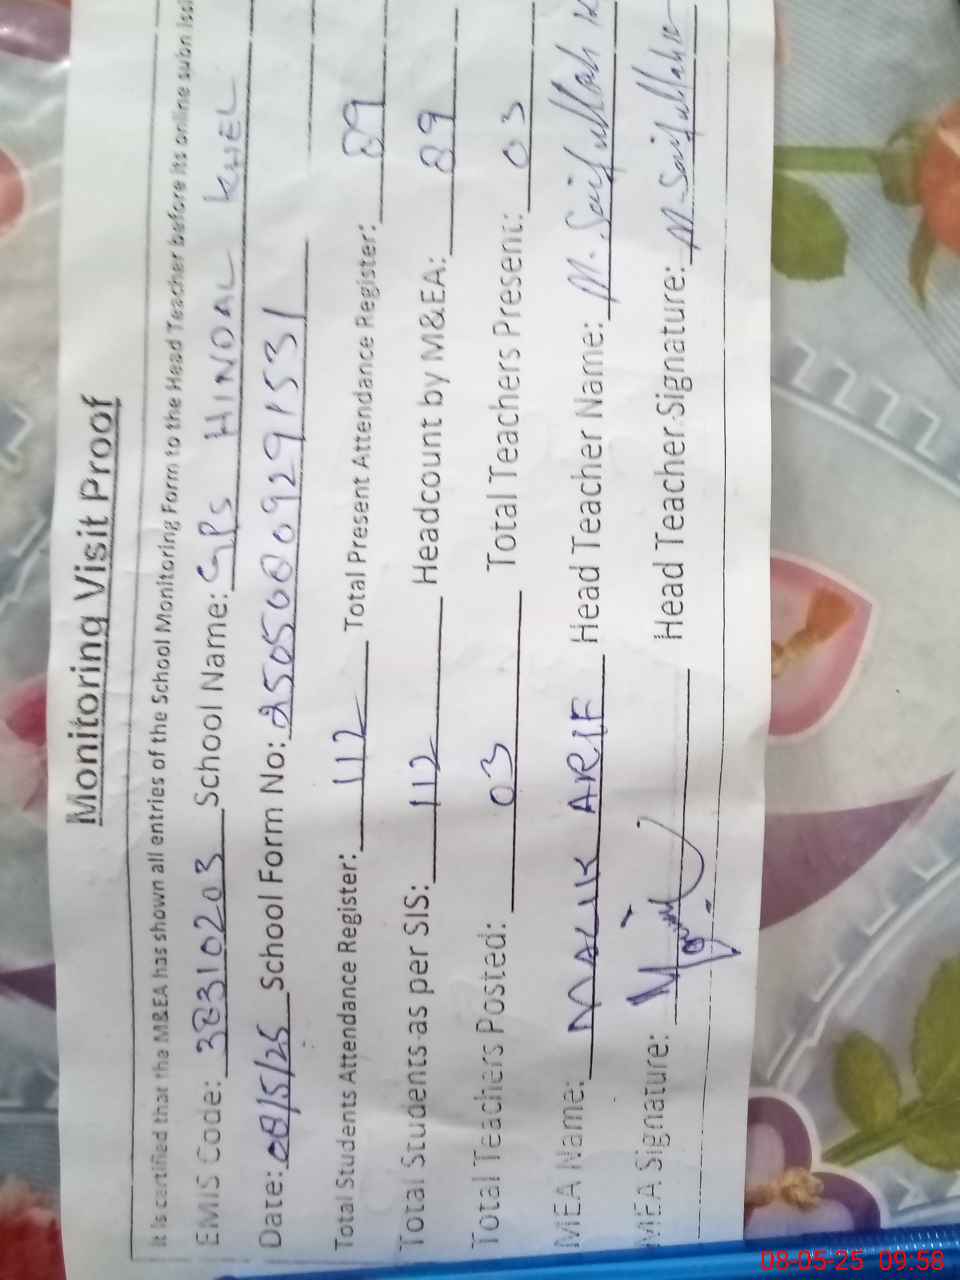 Monitoring Visit Proof
It is certified that the M&EA has shown all entries of the School Monitoring Form to the Head Teacher before its online
EMIS Code: 38310203 School Name: GPS HINDAL KHEL
Date: 08/5/25 School Form No: 25050809291531
Total Students Attendance Register: 112 Total Present Attendance Register: 89
Total Students as per SIS: 112 Headcount by M&EA: 89
Total Teachers Posted: 03 Total Teachers Present: 03
MEA Name: MALIK ARIF Head Teacher Name: M. Saifullah K
MEA Signature: Head Teacher Signature: M. Saifullah K
08-05-25 09:58